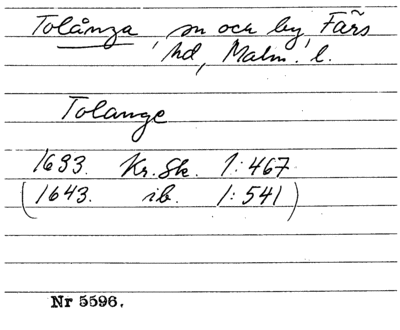 Tolånga, sn och by, Färs
hd, Malm. l.
Tolange
1693. Kr. Sk. 1:467
(1643. ib. 1:541)
Nr 5596.